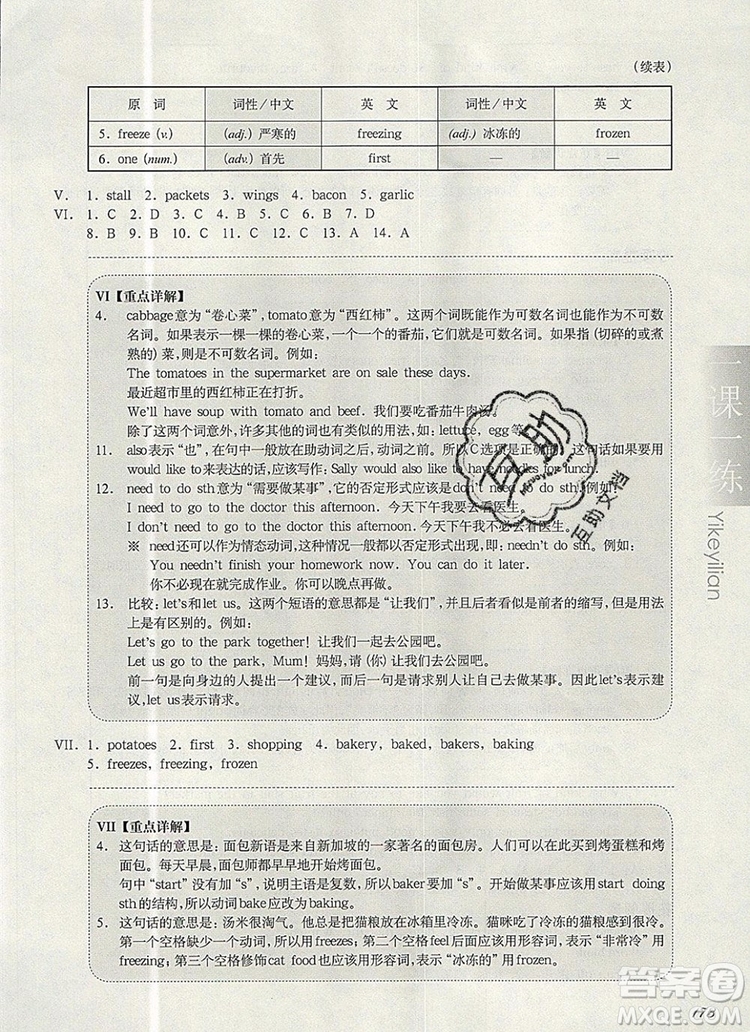 （续表）
原 词 词性/中文 英 文 词性/中文 英 文
5. freeze (v.) (adj.) 严寒的 freezing (adj.) 冰冻的 frozen
6. one (num.) (adv.) 首先 first — —
V. 1. stall 2. packets 3. wings 4. bacon 5. garlic
VI. 1. C 2. D 3. C 4. B 5. B 6. B 7. D
8. B 9. B 10. A 11. C 12. C 13. A 14. A
VI【重点详解】
4. cabbage意为“卷心菜”，tomato意为“西红柿”。这两个词既能作为可数名词也能作为不可数
名词。如果表示一棵一棵的卷心菜，一个一个的番茄，它们就是可数名词。如果指（切碎的或煮
熟的）菜，则是不可数名词。例如：
The tomatoes in the supermarket are on sale these days.
最近超市里的西红柿正在打折。
We'll have soup with tomato and beef. 我们要吃番茄牛肉汤。
除了这两个词意外，许多其他的词也有类似的用法，如：lettuce, egg等。
11. also表示“也”，在句中一般放在助动词之后，动词之前。所以C选项是正确的。这句话如果用
would like to来表达的话，应该写作：Sally would also like to have noodles for lunch.
12. need to do sth意为“需要做某事”，它的否定形式应该是don't need to do sth。例如：
I need to go to the doctor this afternoon. 今天下午我要去看医生。
I don't need to go to the doctor this afternoon. 今天下午我不必去看医生。
※ need还可以作为情态动词，这种情况一般都以否定形式出现，即：needn't do sth. 例如：
You needn't finish your homework now. You can do it later.
你不必现在就完成作业。你可以晚点再做。
13. 比较：let's和let us。这两个短语的意思都是“让我们”，并且前者是后者的缩写，但是用法
上是有区别的。例如：
Let's go to the park together! 让我们一起去公园吧。
Let us go to the park, Mum! 妈妈，请（你）让我们去公园吧。
前一句是向身边的人提出一个建议，而后一句则是请求别人让自己去做某事。因此let's表示建
议，let us表示请求。
VII. 1. potatoes 2. first 3. shopping 4. bakery, baked, bakers, baking
5. freezes, freezing, frozen
VII【重点详解】
4. 这句话的意思是：面包新语是来自新加坡的一家著名的面包房。人们可以在此买到烤蛋糕和烤
面包。每天早晨，面包师都早早地开始烤面包。
句中“start”没有加“s”，说明主语是复数，所以baker要加“s”。开始做某事应该用start doing
sth的结构，所以动词bake应改为baking。
5. 这句话的意思是：汤米很淘气。他总是把猫粮放在冰箱里冷冻。猫咪吃了冷冻的猫粮感到很冷。
第一个空格缺少一个动词，所以用freezes；第二个空格feel后面应用形容词，表示“非常冷”用
freezing；第三个空格修饰cat food也应用形容词，表示“冰冻的”用frozen。
一课一练
Yikeyilian
互助
互助文档
答案圈
MXQE.COM